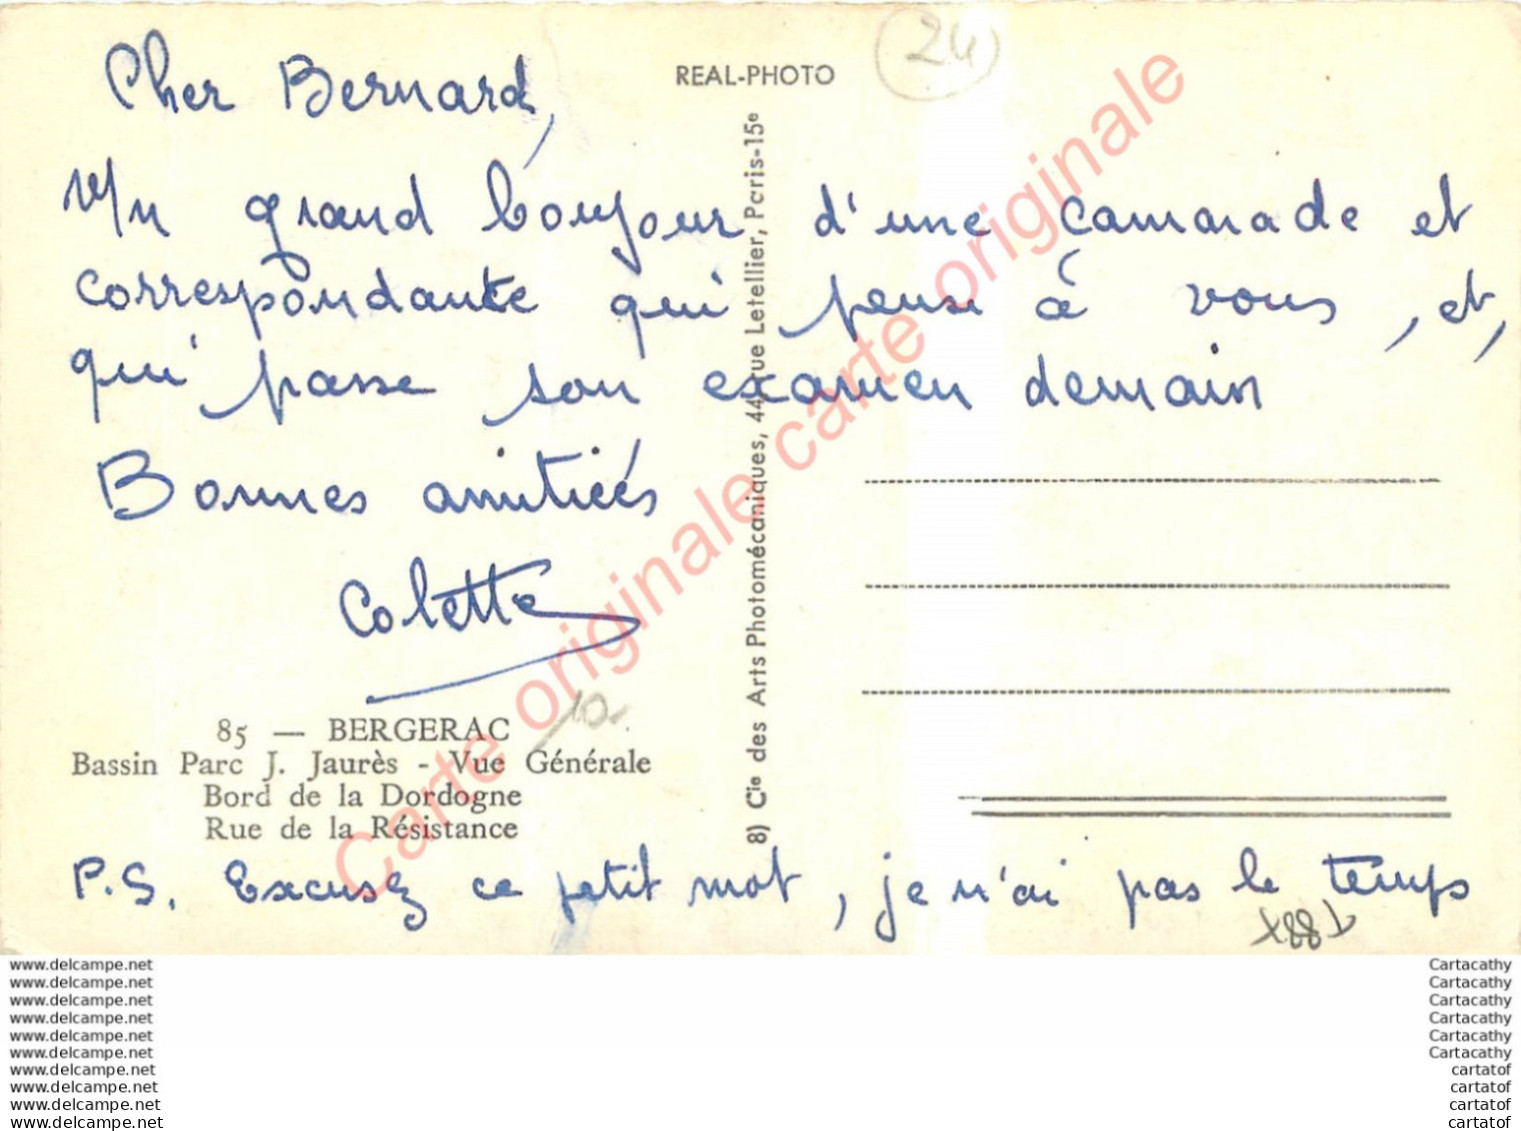 REAL-PHOTO
24
Cher Bernard,
Un grand bonjour d'une camarade et
correspondante qui pense à vous, et,
qui passe son examen demain
Bonnes amitiés
Colette
85 — BERGERAC
Bassin Parc J. Jaurès - Vue Générale
Bord de la Dordogne
Rue de la Résistance
P.S. Excusez ce petit mot, je n'ai pas le temps
8) Cie des Arts Photomécaniques, 44, rue Letellier, Paris-15e
10
Carte originale carte originale
www.delcampe.net
www.delcampe.net
www.delcampe.net
www.delcampe.net
www.delcampe.net
www.delcampe.net
www.delcampe.net
www.delcampe.net
www.delcampe.net
www.delcampe.net
Cartacathy
Cartacathy
Cartacathy
Cartacathy
Cartacathy
Cartacathy
cartatof
cartatof
cartatof
cartatof